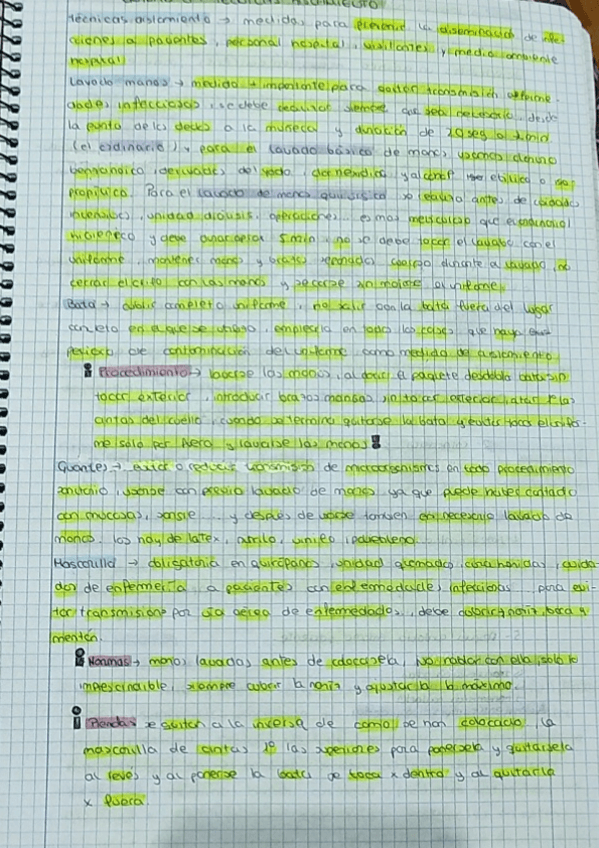 técnicas aislamiento → medidas para prevenir la diseminación de infe-
cciones a pacientes, personal hospital, visitantes y medio ambiente
hospital.
Lavado manos → medida + importante para evitar transmisión enferme-
dades infecciosas, se debe realizar siempre que sea necesario, desde
la punta de los dedos a la muñeca y duración de 20 seg a 1 min
(el ordinario), para el lavado básico de manos usamos
derivados del yodo, clorhexidina y alcohol etílico o iso
propílico. Para el lavado de manos quirúrgico se realiza antes de cuidados
intensivos, unidad diálisis, operaciones, es mas meticuloso que el ordinario/
higiénico y debe durar aprox 5 min, no se debe tocar el lavabo con el
uniforme, mantener manos y brazos cuerpo durante el lavado, no
cerrar el grifo con las manos y secarse sin mojar el uniforme.
Bata → cubrir completo uniforme, no salir con la bata fuera del lugar
concreto en el que se utilizó, emplearla en todos los casos que haya
peligro de contaminación del uniforme como medida de aislamiento
Procedimiento → lavarse las manos, al abrir el paquete desdobla bata sin
tocar exterior, introducir brazos mangas sin tocar exterior, atar las
cintas del cuello, cuando se termina quitarse la bata y evitar tocar el unifor-
me solo por fuera y lavarse las manos
Guantes → evitar o reducir transmisión de microorganismos en todo procedimiento
sanitario, usarse con previo lavado de manos ya que puede haber contacto
con mucosas, sangre... y después de usarse tambien es necesario lavado de
manos. los hay de latex, nitrilo, vinilo, polietileno.
Mascarilla → obligatoria en quirófanos, unidad quemados, cuida-
dos de enfermería a pacientes con enfermedades infecciosas para evi-
tar transmisiones por vía aérea de enfermedades, debe cubrir nariz, boca y
mentón.
Normas → manos lavadas antes de colocarsela, no hablar con ella, solo lo
imprescindible, siempre cubrir la nariz y ajustarla lo máximo.
Prendas se quitan a la inversa de como se han colocado, la
mascarilla de cintas 1º las superiores para ponersela y quitarsela
al revés y al ponerse la bata se toca x dentro y al quitarla
x fuera.